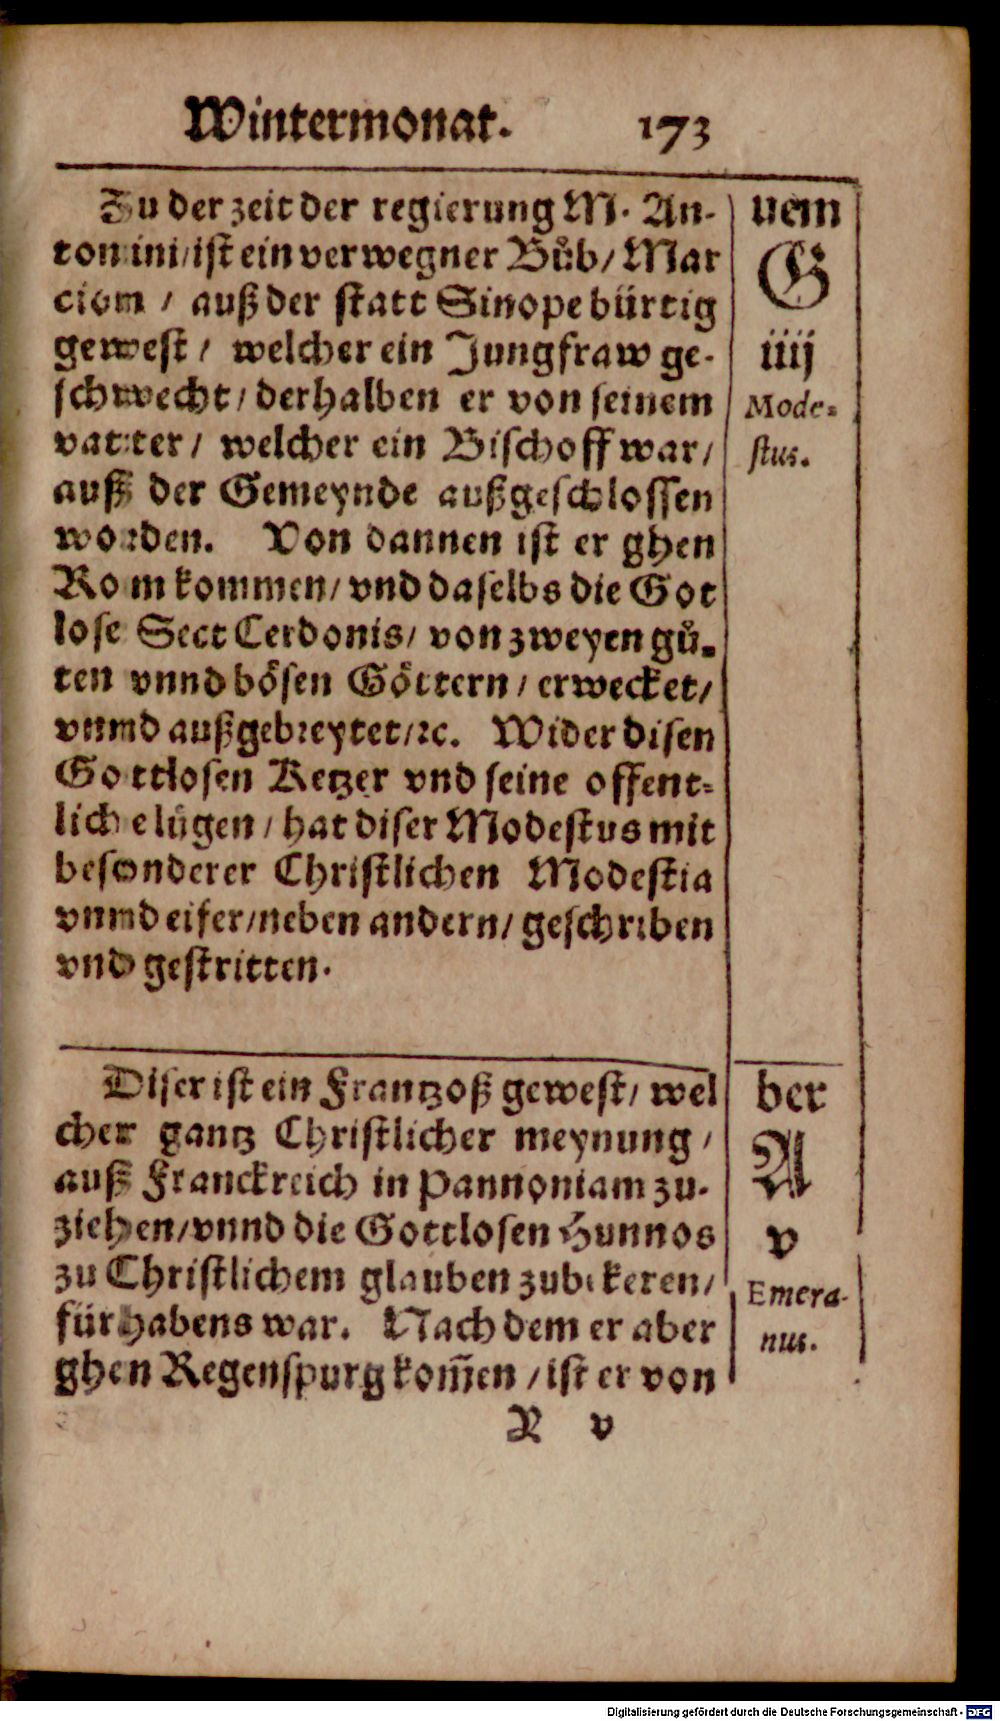 Wintermonat. 173
Zu der zeit der regierung M. An-
tonini/ist ein verwegner Bůb/Mar
cion / auß der statt Sinope bürtig
gewest / welcher ein Jungfraw ge-
schwecht/derhalben er von seinem
vatter/ welcher ein Bischoff war/
auß der Gemeynde außgeschlossen
worden. Von dannen ist er ghen
Rom kommen/vnd daselbs die Got
lose Sect Cerdonis/ von zweyen gů-
ten vnnd bösen Göttern/erwecket/
vnnd außgebreytet/ꝛc. Wider disen
Gottlosen Ketzer vnd seine offent-
liche lügen/hat diser Modestus mit
besonderer Christlichen Modestia
vnnd eifer/neben andern/geschriben
vnd gestritten.
vem
G
iiij
Mode-
stus.
Diser ist ein Frantzoß gewest/ wel
cher gantz Christlicher meynung /
auß Franckreich in Pannoniam zu-
ziehen/vnnd die Gottlosen Hunnos
zu Christlichem glauben zubekeren/
fürhabens war. Nach dem er aber
ghen Regenspurg kom̃en/ist er von
ber
A
v
Emera-
nus.
R v
Digitalisierung gefördert durch die Deutsche Forschungsgemeinschaft - DFG